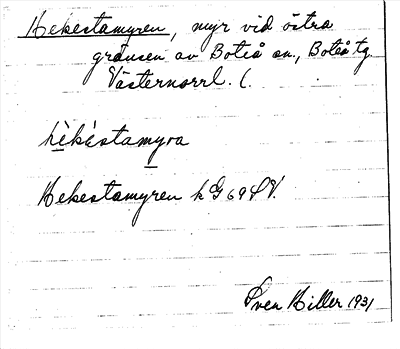 Hekestamyren, myr vid östra
gränsen av Boteå sn., Boteå tg
Västernorrl. l.
hèkèstamyra
Hekestamyren k G 69 SV.
Sven Hiller 1931